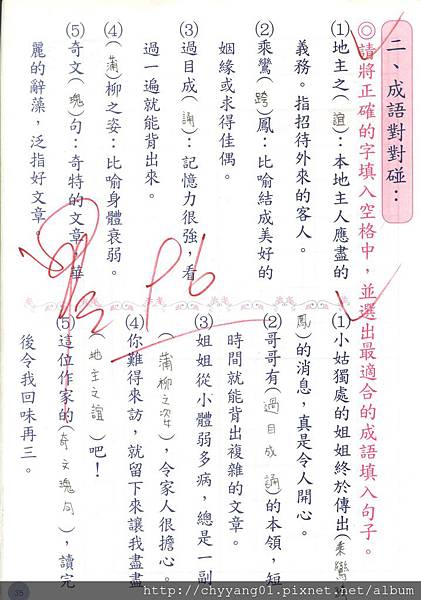 二、成語對對碰：
◎請將正確的字填入空格中，並選出最適合的成語填入句子。
(1)地主之(誼)：本地主人應盡的
義務。指招待外來的客人。
(2)乘鸞(跨)鳳：比喻結成美好的
姻緣或求得佳偶。
(3)過目成(誦)：記憶力很強，看
過一遍就能背出來。
(4)(蒲)柳之姿：比喻身體衰弱。
(5)奇文(瑰)句：奇特的文章，華
麗的辭藻，泛指好文章。
(1)小姑獨處的姐姐終於傳出(乘鸞跨
鳳)的消息，真是令人開心。
(2)哥哥有(過目成誦)的本領，短
時間就能背出複雜的文章。
(3)姐姐從小體弱多病，總是一副
(蒲柳之姿)，令家人很擔心。
(4)你難得來訪，就留下來讓我盡盡
(地主之誼)吧！
(5)這位作家的(奇文瑰句)，讀完
後令我回味再三。
P6
35
http://chyyang01.pixnet.net/album